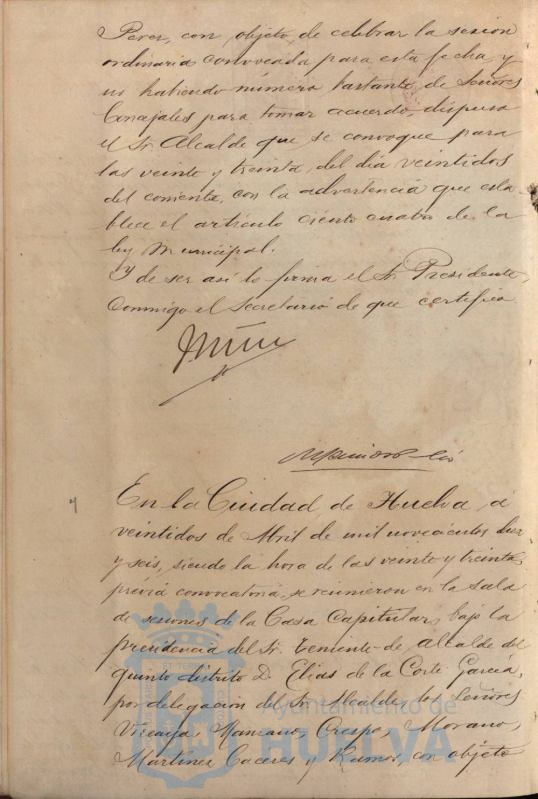 Perez, con objeto, de celebrar la sesion
ordinaria convocada para esta fecha y
no habiendo número bastante de Señores
Concejales para tomar acuerdo, dispuso
el Sr. Alcalde que se convoque para
las veinte y treinta, del día veintidos
del corriente, con la advertencia que esta-
blece el artículo ciento cuatro de la
ley Municipal.
Y de ser así lo firma el Sr. Presidente,
conmigo el Secretario de que certifico.
En la Ciudad, de Huelva, á
veintidos de Abril de mil novecientos diez
y seis, siendo la hora de las veinte y treinta,
prévia convocatoria, se reunieron en la sala
de sesiones de la Casa Capitular, bajo la
presidencia del Sr. Teniente de Alcalde del
quinto distrito D. Elias de la Corte García,
por delegacion del Sr. Alcalde, los Señores
Vizcaya, Manzano, Crespo, Morano,
Martinez Caceres y Ramos, con objeto
Ayuntamiento de
HUELVA